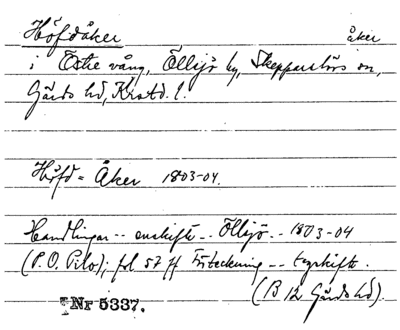 Höfdåker åker
i Östre vång, Öllsjö by, Skepparslövs sn,
Gärds hd, Krstd. l.
Höfd=Åker 1803-04.
Handlingar -- enskifte -- Öllsjö -- 1803-04
(P. O. Pilo); fol 57 ff Förteckning --
(B 12 Gärds hd).
Nr 5337.